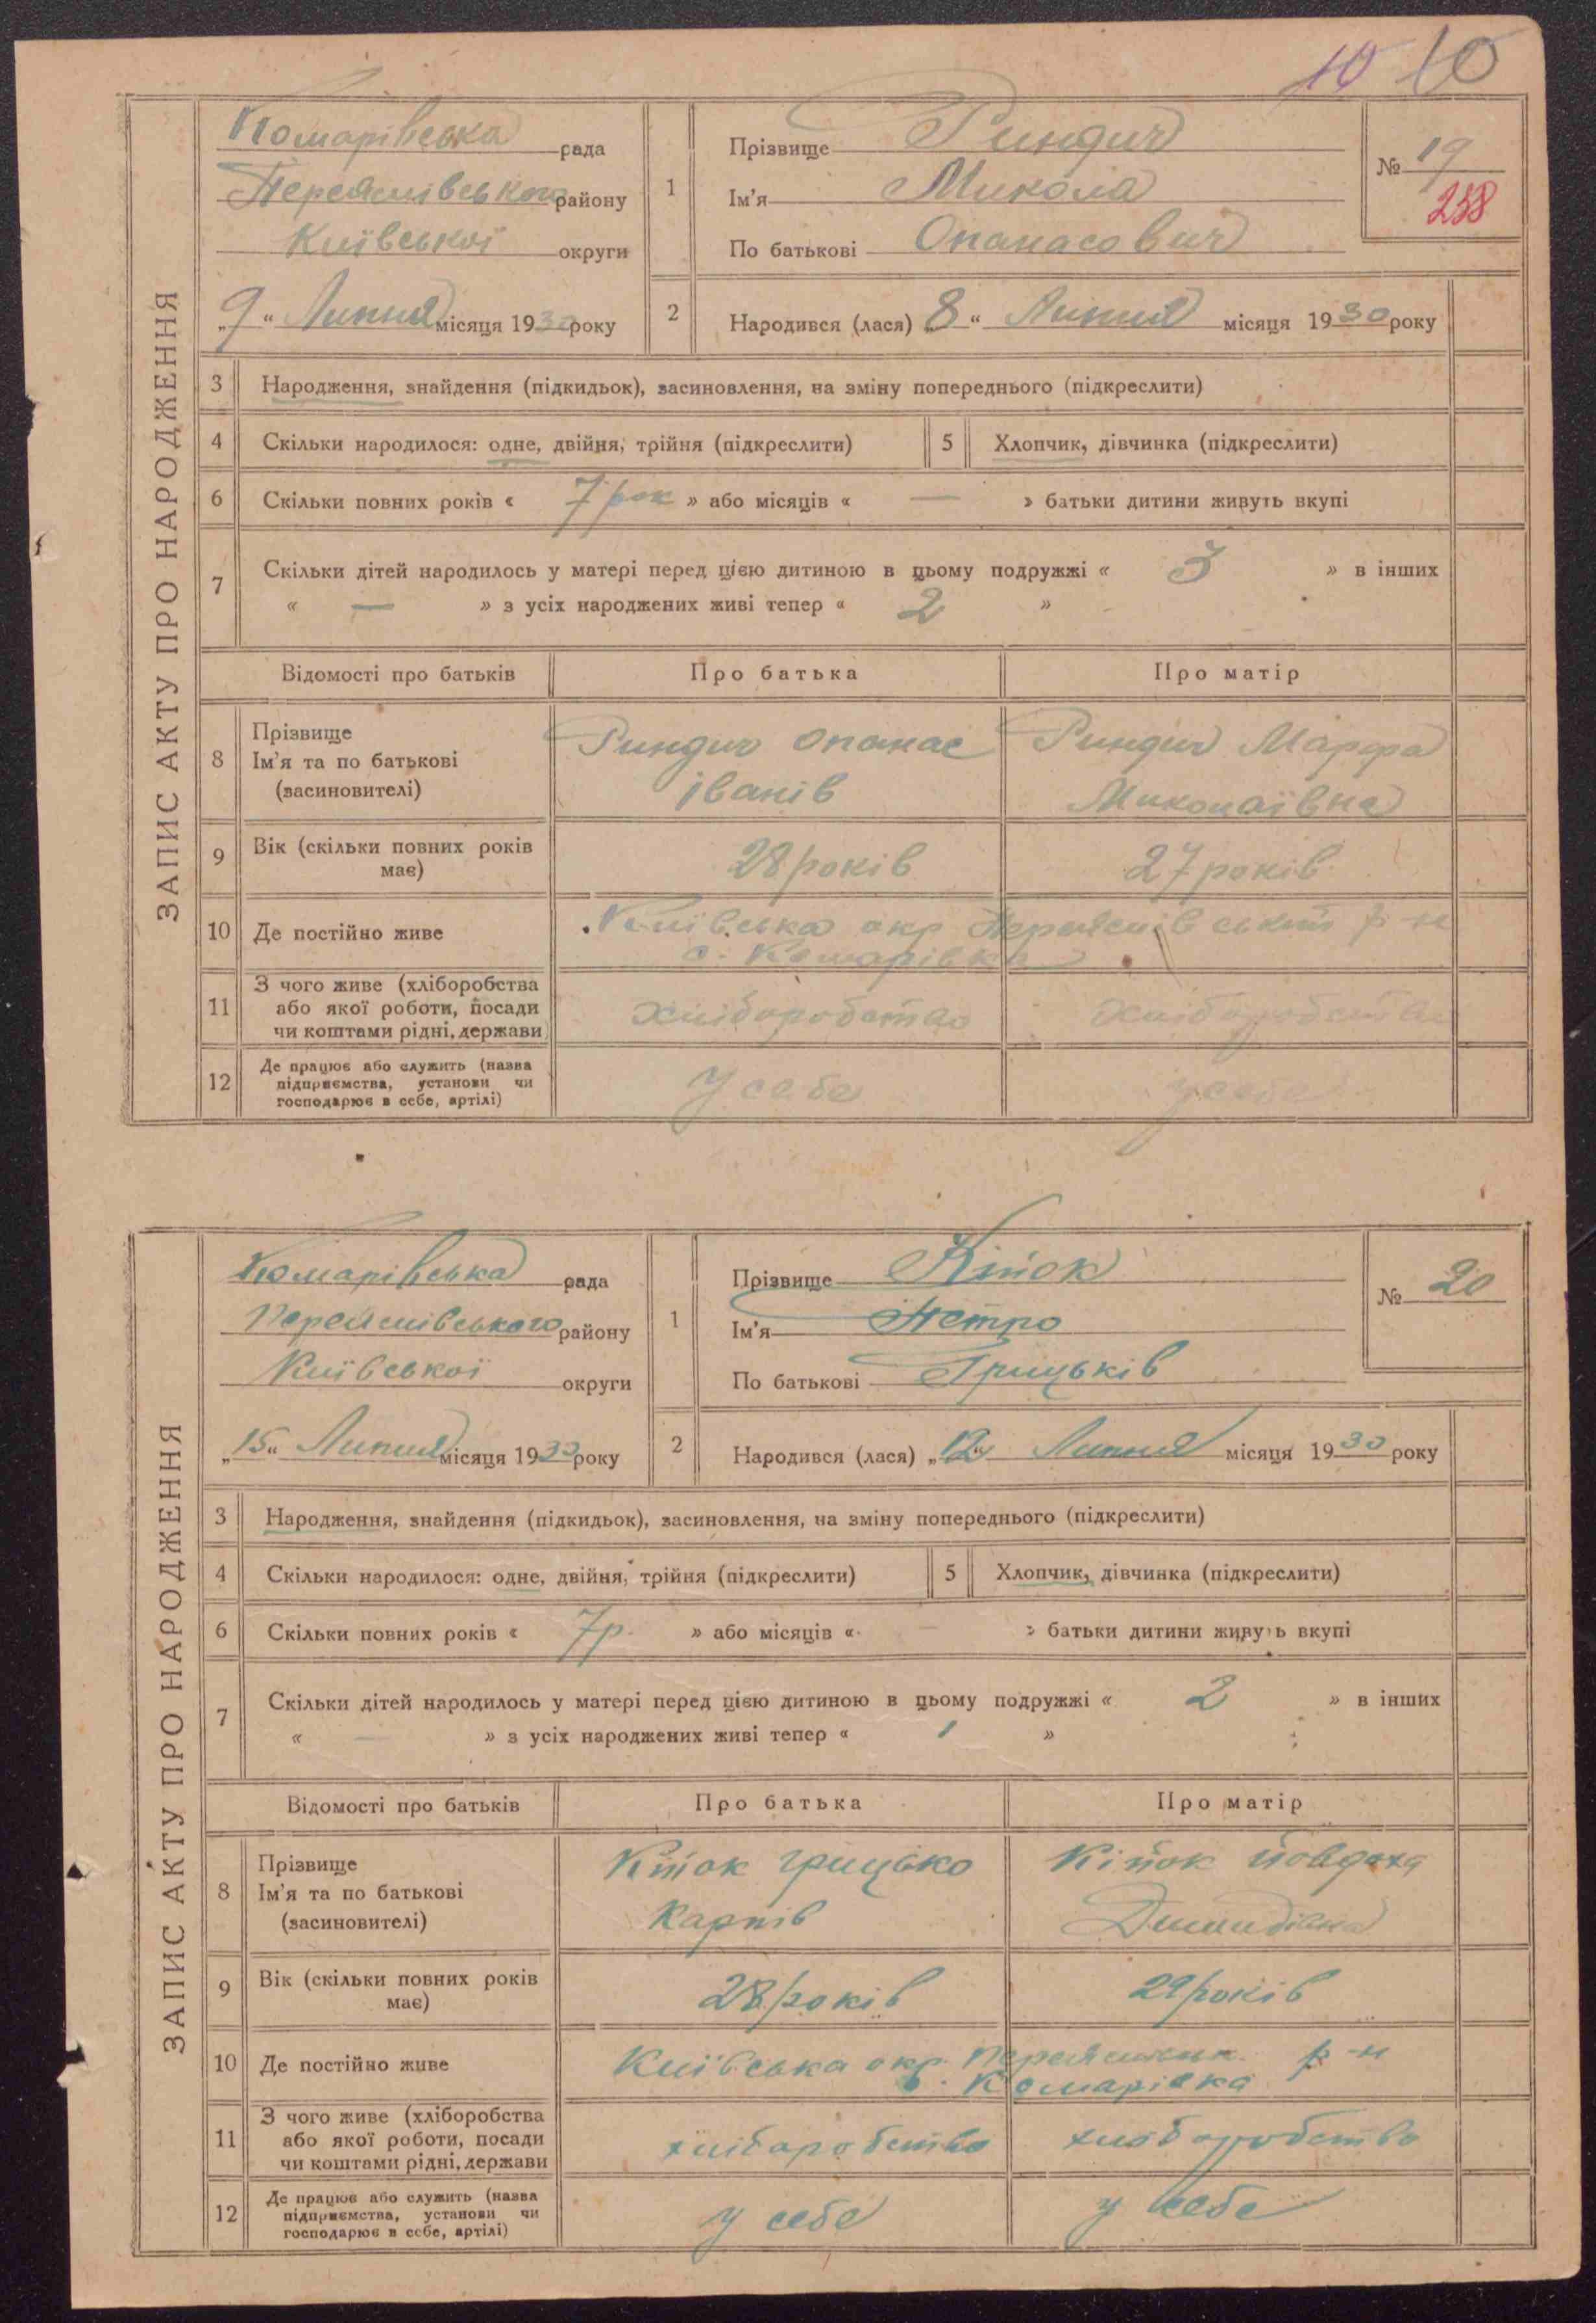 10 10
ЗАПИС АКТУ ПРО НАРОДЖЕННЯ
Комарівська рада
Переяслівського району
Київської округи
„9“ Липня місяця 1930 року
1 Прізвище Риндич
Ім'я Микола
По батькові Опанасович
№ 19
258
2 Народився (лася) „8“ Липня місяця 1930 року
3 Народження, знайдення (підкидьок), засиновлення, на зміну попереднього (підкреслити)
4 Скільки народилося: одне, двійня, трійня (підкреслити) 5 Хлопчик, дівчинка (підкреслити)
6 Скільки повних років « 7 рок » або місяців « — » батьки дитини живуть вкупі
7 Скільки дітей народилось у матері перед цією дитиною в цьому подружжі « 3 » в інших
« — » з усіх народжених живі тепер « 2 »
Відомості про батьків Про батька Про матір
8 Прізвище
Ім'я та по батькові
(засиновителі)
Риндич Опанас
Іванів
Риндич Марфа
Миколаївна
9 Вік (скільки повних років
має)
28 років 27 років
10 Де постійно живе Київська окр Переяслівський р-н
с. Комарівка
11 З чого живе (хліборобства
або якої роботи, посади
чи коштами рідні, держави
хліборобство хліборобство
12 Де працює або служить (назва
підприємства, установи чи
господарює в себе, артілі)
У себе у себе
ЗАПИС АКТУ ПРО НАРОДЖЕННЯ
Комарівська рада
Переяслівського району
Київської округи
„15“ Липня місяця 1930 року
1 Прізвище Кіток
Ім'я Петро
По батькові Грицьків
№ 20
2 Народився (лася) „12“ Липня місяця 1930 року
3 Народження, знайдення (підкидьок), засиновлення, на зміну попереднього (підкреслити)
4 Скільки народилося: одне, двійня, трійня (підкреслити) 5 Хлопчик, дівчинка (підкреслити)
6 Скільки повних років « 7р. » або місяців « — » батьки дитини живуть вкупі
7 Скільки дітей народилось у матері перед цією дитиною в цьому подружжі « 2 » в інших
« — » з усіх народжених живі тепер « 1 »
Відомості про батьків Про батька Про матір
8 Прізвище
Ім'я та по батькові
(засиновителі)
Кіток Грицько
Карпів
Кіток Йовдоха
9 Вік (скільки повних років
має)
28 років 29 років
10 Де постійно живе Київська окр. р-н
с. Комарівка
11 З чого живе (хліборобства
або якої роботи, посади
чи коштами рідні, держави
хліборобство хліборобство
12 Де працює або служить (назва
підприємства, установи чи
господарює в себе, артілі)
у себе у себе